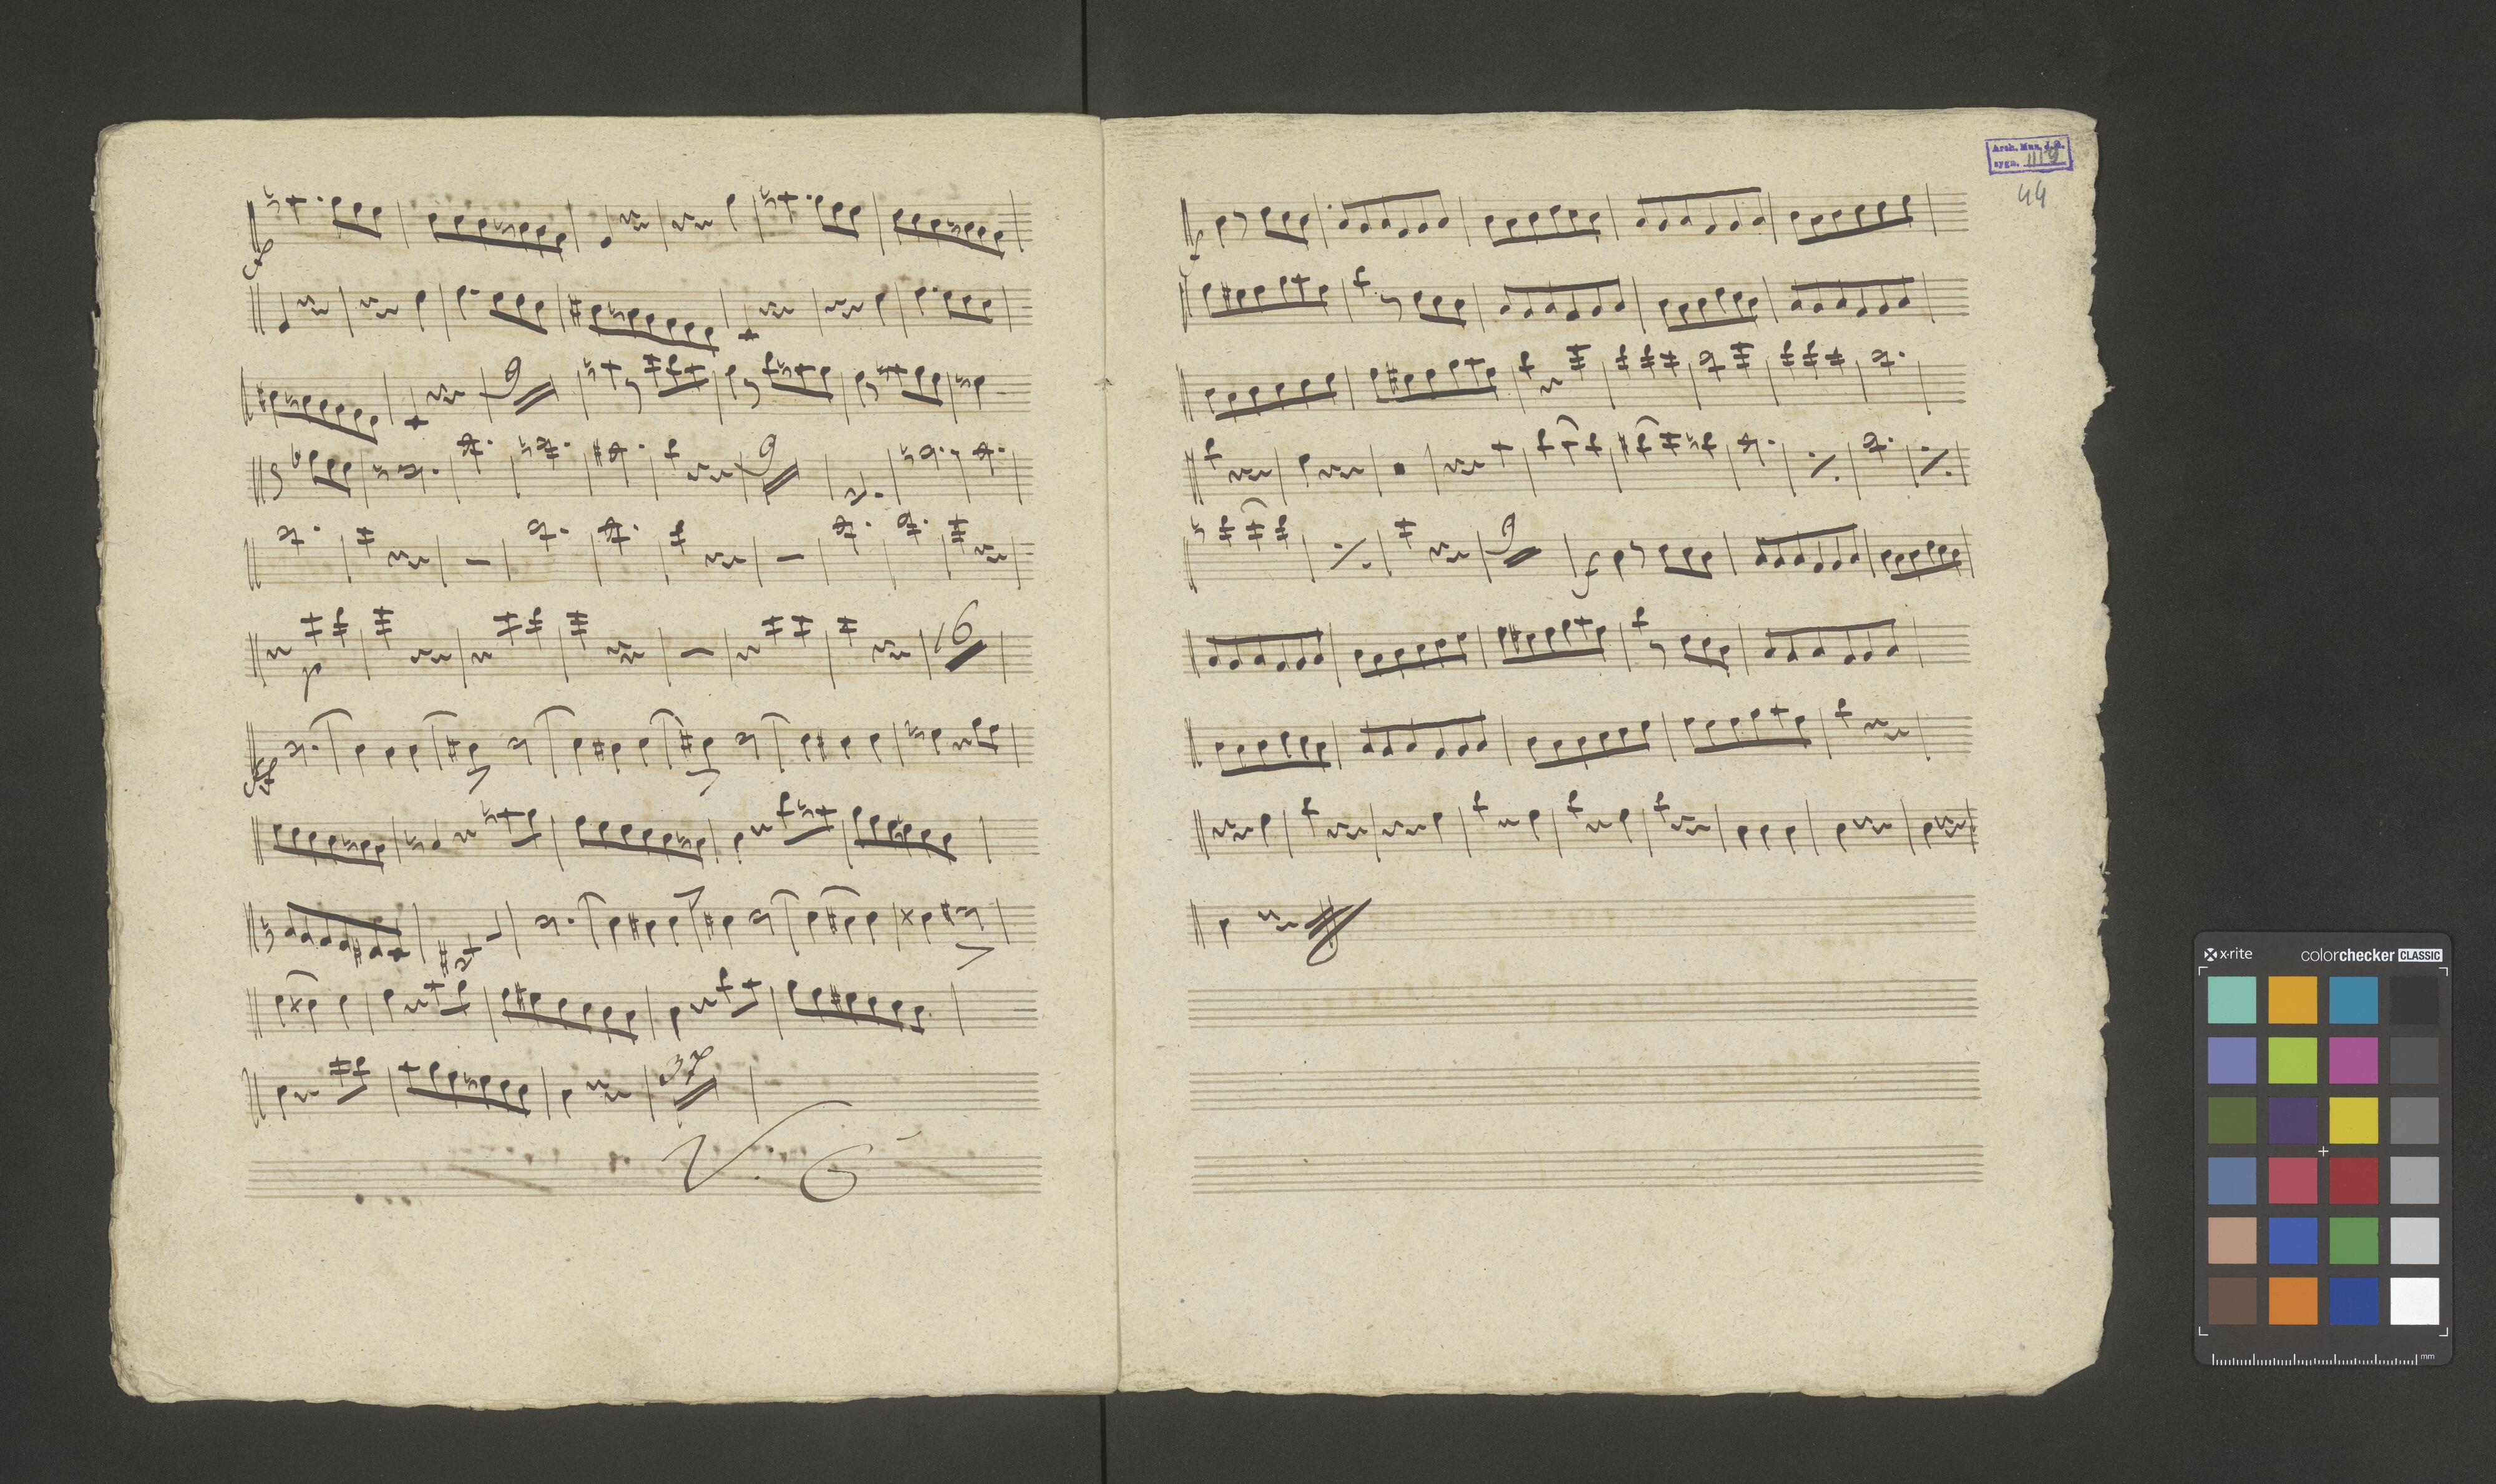 f
9
9
p
16
ff
37
V. S.
Arch. Mus. J. G.
sygn. III 9
44
f
9
f
x-rite
colorchecker CLASSIC
mm